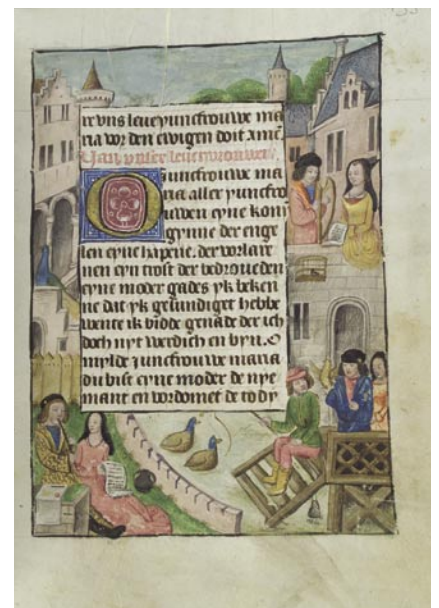 re vns leue yuncfrouwe ma
ria vor den ewigen doit amē
Van vnser leuer vrouwen
O iuncfrouwe ma
ria aller yuncfro
uwen eyne koni
gynne der enge
len eyne hapene. der vorlare
nen eyn trost der bedroueden
eyne moder gades yk beken
ne dat yk gesundiget hebbe
wente ik bidde genade der ich
doch nyt werdich en byn. O
mylde iuncfrouwe maria
du bist eyne moder de nye
mant en vordomet de to dy